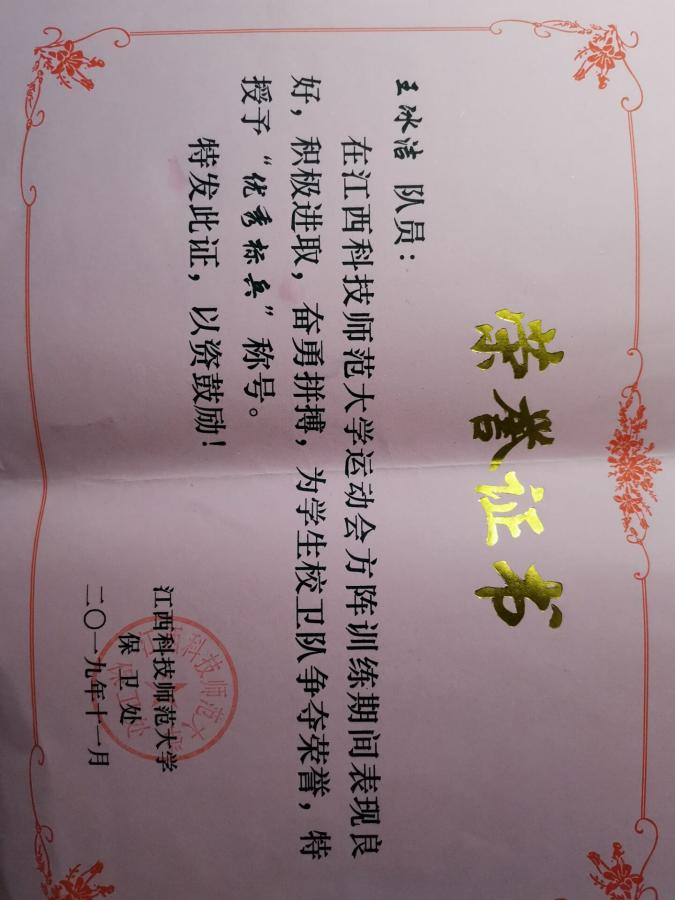 荣誉证书
王冰洁 队员：
在江西科技师范大学运动会方阵训练期间表现良
好，积极进取，奋勇拼搏，为学生校卫队争夺荣誉，特
授予“优秀标兵”称号。
特发此证，以资鼓励！
江西科技师范大学
保卫处
二〇一九年十一月